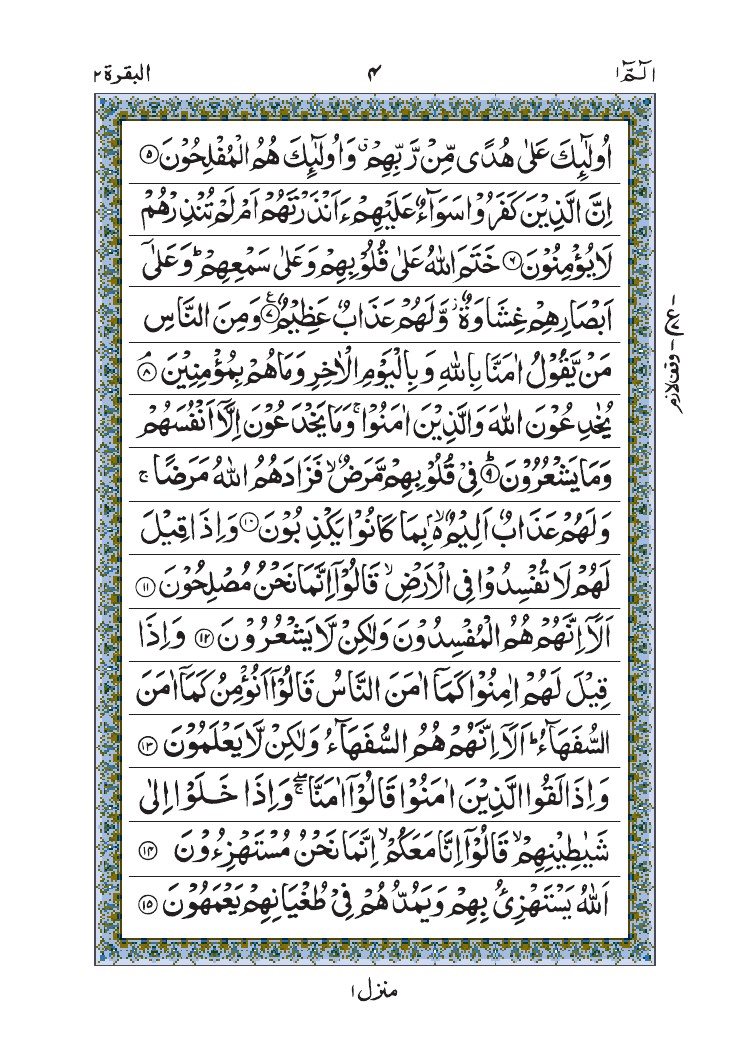 الٓمّٓ ١
٤
البقرة ٢
اُولٰٓئِكَ عَلٰى هُدًى مِّنْ رَّبِّهِمْ ۗ وَاُولٰٓئِكَ هُمُ الْمُفْلِحُوْنَ ۝٥
اِنَّ الَّذِيْنَ كَفَرُوْا سَوَآءٌ عَلَيْهِمْ ءَاَنْذَرْتَهُمْ اَمْ لَمْ تُنْذِرْهُمْ
لَا يُؤْمِنُوْنَ ۝٦ خَتَمَ اللّٰهُ عَلٰى قُلُوْبِهِمْ وَعَلٰى سَمْعِهِمْ ؕ وَعَلٰٓى
اَبْصَارِهِمْ غِشَاوَةٌ ؗ وَّلَهُمْ عَذَابٌ عَظِيْمٌ ۝٧ ع وَمِنَ النَّاسِ
مَنْ يَّقُوْلُ اٰمَنَّا بِاللّٰهِ وَبِالْيَوْمِ الْاٰخِرِ وَمَا هُمْ بِمُؤْمِنِيْنَ ۘ ۝٨
يُخٰدِعُوْنَ اللّٰهَ وَالَّذِيْنَ اٰمَنُوْا ۚ وَمَا يَخْدَعُوْنَ اِلَّآ اَنْفُسَهُمْ
وَمَا يَشْعُرُوْنَ ؕ ۝٩ فِيْ قُلُوْبِهِمْ مَّرَضٌ ۙ فَزَادَهُمُ اللّٰهُ مَرَضًا ۚ
وَلَهُمْ عَذَابٌ اَلِيْمٌ ۢ ۙ بِمَا كَانُوْا يَكْذِبُوْنَ ۝١٠ وَاِذَا قِيْلَ
لَهُمْ لَا تُفْسِدُوْا فِى الْاَرْضِ ۙ قَالُوْٓا اِنَّمَا نَحْنُ مُصْلِحُوْنَ ۝١١
اَلَآ اِنَّهُمْ هُمُ الْمُفْسِدُوْنَ وَلٰكِنْ لَّا يَشْعُرُوْنَ ۝١٢ وَاِذَا
قِيْلَ لَهُمْ اٰمِنُوْا كَمَآ اٰمَنَ النَّاسُ قَالُوْٓا اَنُؤْمِنُ كَمَآ اٰمَنَ
السُّفَهَآءُ ؕ اَلَآ اِنَّهُمْ هُمُ السُّفَهَآءُ وَلٰكِنْ لَّا يَعْلَمُوْنَ ۝١٣
وَاِذَا لَقُوا الَّذِيْنَ اٰمَنُوْا قَالُوْٓا اٰمَنَّا ۖۚ وَاِذَا خَلَوْا اِلٰى
شَيٰطِيْنِهِمْ ۙ قَالُوْٓا اِنَّا مَعَكُمْ ۙ اِنَّمَا نَحْنُ مُسْتَهْزِءُوْنَ ۝١٤
اَللّٰهُ يَسْتَهْزِئُ بِهِمْ وَيَمُدُّهُمْ فِيْ طُغْيَانِهِمْ يَعْمَهُوْنَ ۝١٥
وقف لازم
منزل ١